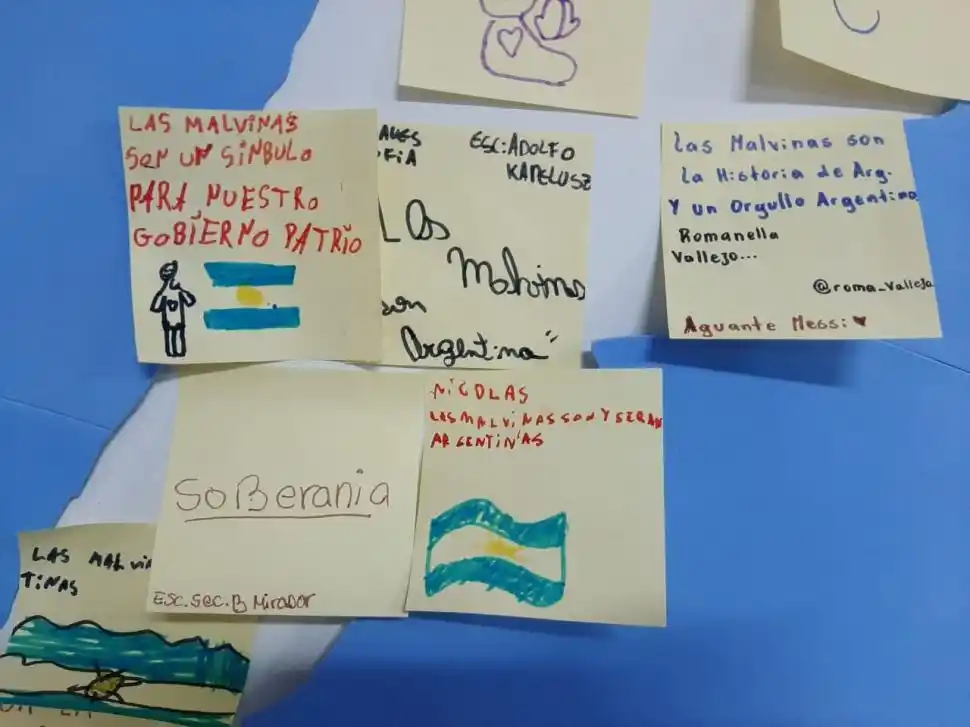 LAS MALVINAS
SON UN SINBULO
PARA NUESTRO
GOBIERNO PATRIO
ESC: ADOLFO
KAPELUSZ
Las
Malvinas
son
Argentina"
Las Malvinas son
la Historia de Arg.
Y un Orgullo Argentino
Romanella
Vallejo...
@roma_Vallejo
Aguante Messi ♥
SoBerania
ESC. Sec. B Mirador
NICOLAS
LAS MALVINAS SON Y SERAN
ARGENTINAS
LAS MALVIN
TINAS